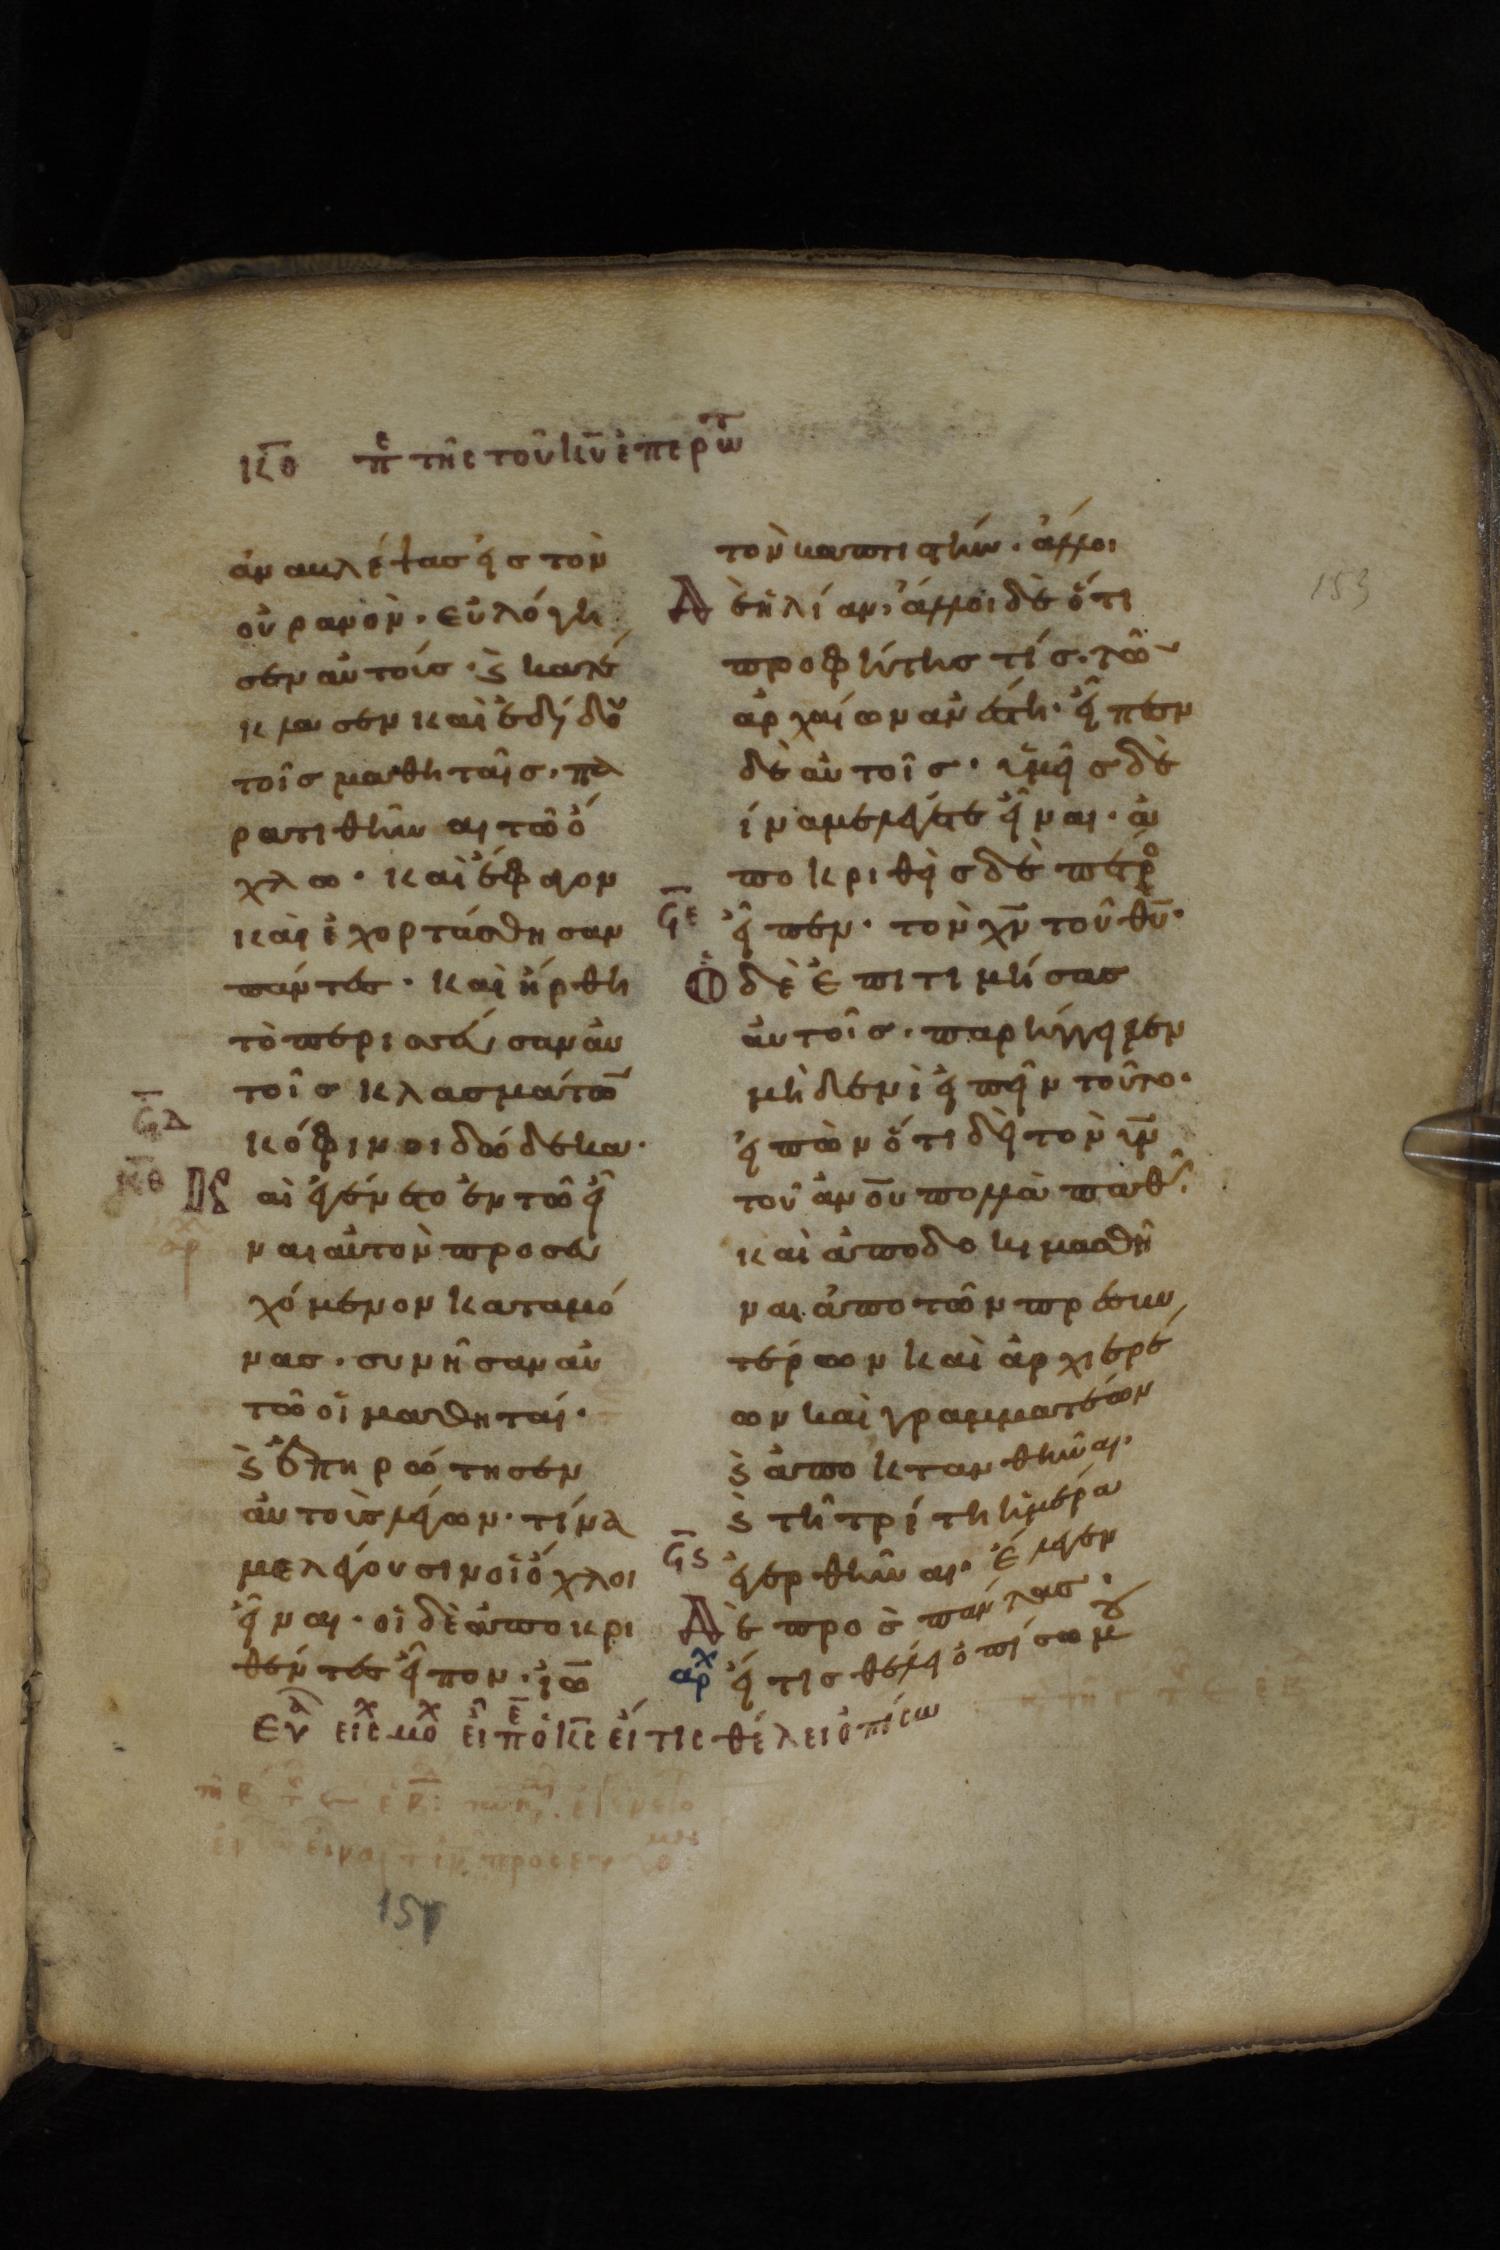 κ̅θ π̅ε τῆς τοῦ κ̅υ ἐπερωτ
ἀναβλέψας εἰς τὸν
οὐρανὸν· εὐλόγη
σεν αὐτοίσ· ϗ κατέ
κλασεν καὶ ἐδίδου
τοῖσ μαθηταῖσ· πα
ρατιθῆναι τῶ ὄ
χλω· καὶ ἔφαγον
καὶ ἐχορτάσθησαν
πάντεσ· καὶ ἤρθη
τὸ περισσεύσαν αὐ
τοῖσ κλασμάτω̅
ϟ̅δ
κόφινοι δώδεκα·
κ̅θ
Καὶ ἐγένετο ἐν τῶ εἶ
ἀρχ
ναι αὐτὸν προσευ
χόμενον καταμό
νασ· συνῆσαν αὐ
τῶ οἱ μαθηταί·
ϗ ἐπηρώτησεν
αὐτοὺσ λέγων· τίνα
με λέγουσιν οἱ ὄχλοι
εἶναι· οἱ δὲ ἀποκρι
θέντεσ εἶπον· ἰω̅
τὸν βαπτιστήν· ἄλλοι
Δὲ ἠλίαν· ἄλλοι δὲ ὅτι
προφήτησ τίσ· τῶ̅
ἀρχαίων ἀνέστη· εἶπεν
δὲ αὐτοῖσ· ὑμεῖσ δὲ
τίνα με λέγετε εἶναι· ἀ
ποκριθεὶσ δὲ πέτρο
ϟ̅ε
εἶπεν· τὸν χ̅ν τοῦ θ̅υ·
Ὁ δὲ ἐπιτιμήσασ
αὐτοῖσ· παρήγγειλεν
μὴδενὶ εἰπεῖν τοῦτο·
εἰπὼν ὅτι δεῖ τὸν υ̅ν
τοῦ ἀν̅ου πολλὰ παθεῖ
καὶ ἀποδοκιμασθῆ
ναι ἀπο τῶν πρεσβυ
τέρων καὶ ἀρχιερέ
ων καὶ γραμματέων
ϗ ἀποκτανθῆναι·
ϗ τῆ τρίτη ἡμέρα
ϟ̅ς
ἐγερθῆναι· ἔλεγεν
Δὲ προσ πάντασ·
ἀρχ
εἴ τισ θέλει ὀπίσω μου
Ευα εις μαρ εἶπεν ὁ κ̅ς εἴ τις θέλει ὀπίσω
153